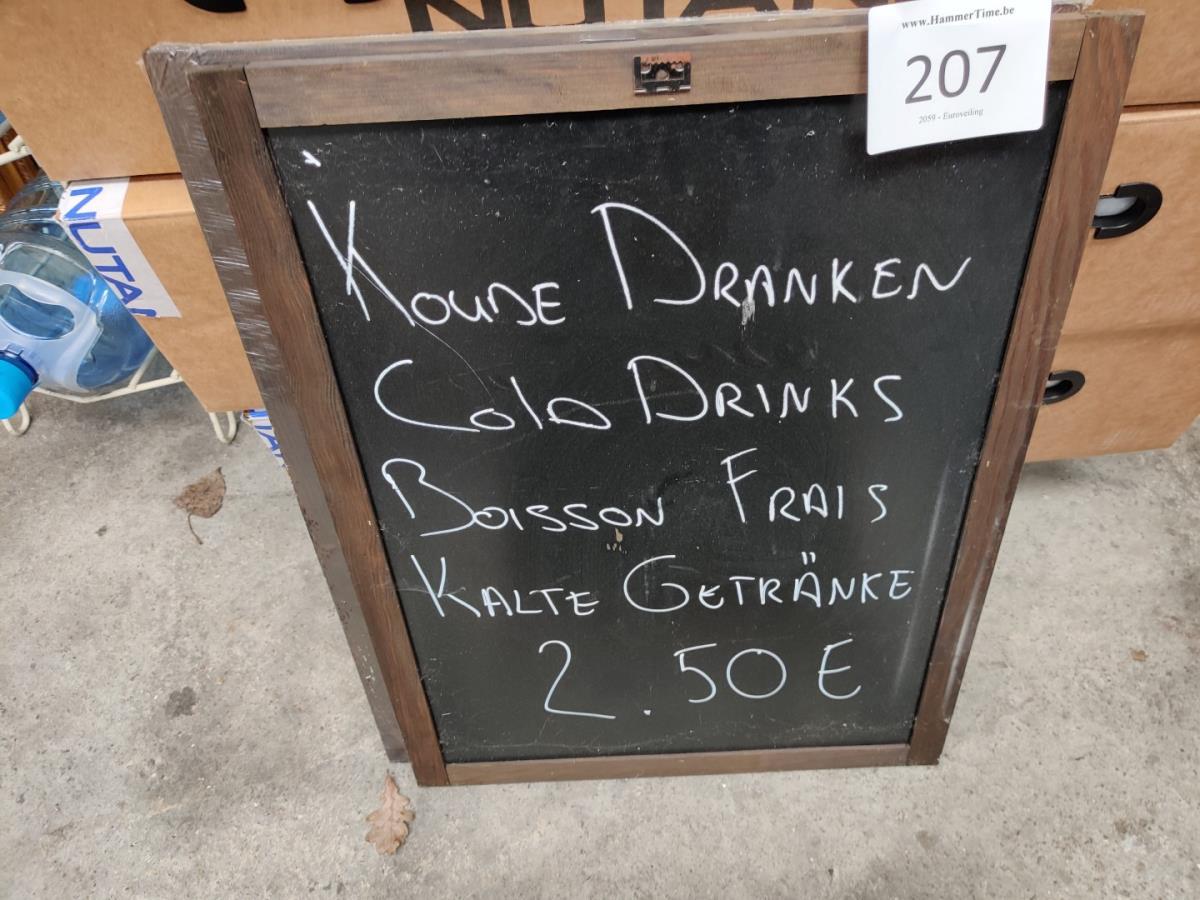 NUTAN
www.HammerTime.be
207
2059 - Euroveiling
NUTAN
KOUDE DRANKEN
Cold DRINKS
BOISSON FRAIS
KALTE GETRÄNKE
2.50 E